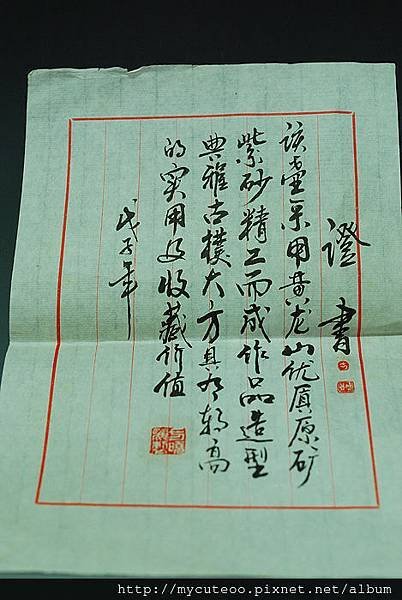 證書
该壶采用黄龙山优质原矿
紫砂精工而成作品造型
典雅古樸大方具有较高
的实用及收藏价值
戊子年
http://mycuteoo.pixnet.net/album